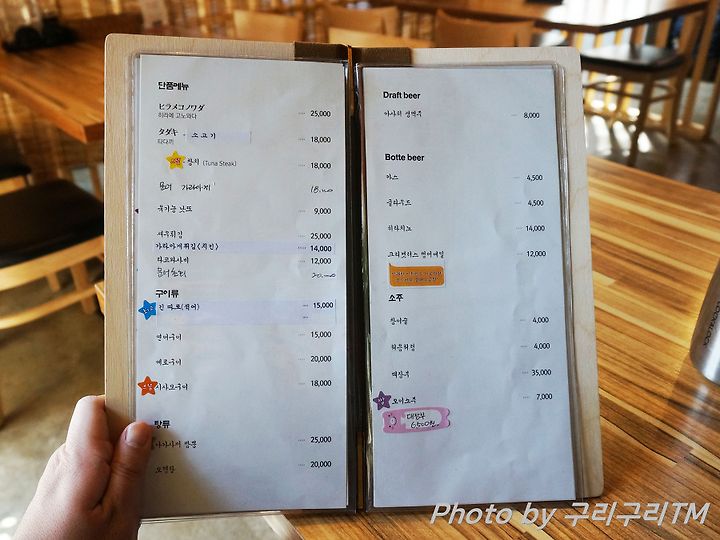 단품메뉴
ヒラメコノワダ
히라메 고노와다 25,000
タダキ - 소고기
타다끼 18,000
참치 (Tuna Steak) 18,000
문어 가라아게 18,000
9,000
새우튀김 25,000
가라아게튀김(치킨) 14,000
타코와사비 12,000
20,000
구이류
15,000
연어구이 15,000
메로구이 20,000
시사모구이 18,000
탕류
25,000
오뎅탕 20,000
Draft beer
아사히 생맥주 8,000
Botte beer
카스 4,500
클라우드 4,500
히타치노 14,000
12,000
소주
참이슬 4,000
처음처럼 4,000
대장부 35,000
7,000
대장부
6500원
Photo by 구리구리TM